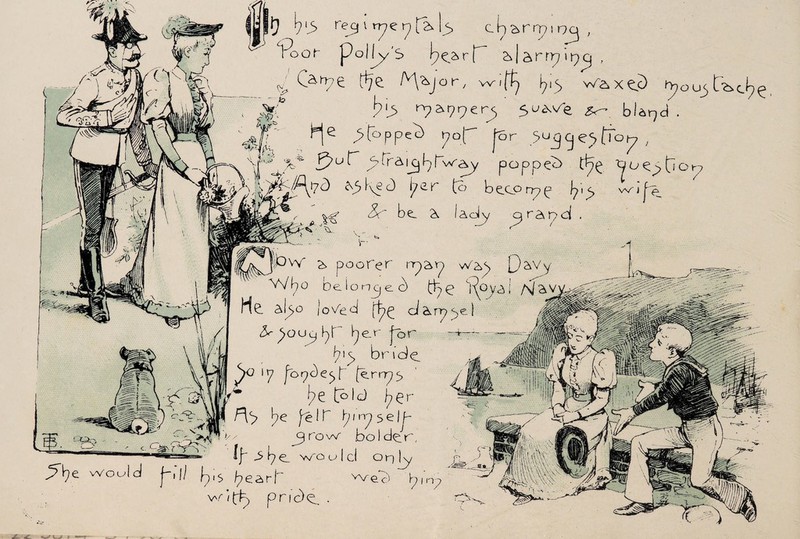 In his regimentals charming,
Poor Polly's heart alarming,
Came the Major, with his waxed moustache,
his manners suave & bland.
He stopped not for suggestion,
But straightway popped the question
And asked her to become his wife
& be a lady grand.
Now a poorer man was Davy
Who belonged the Royal Navy
He also loved the damsel
& sought her for
his bride
So in fondest terms
he told her
As he felt himself
grow bolder,
If she would only
She would fill his heart wed him
with pride.